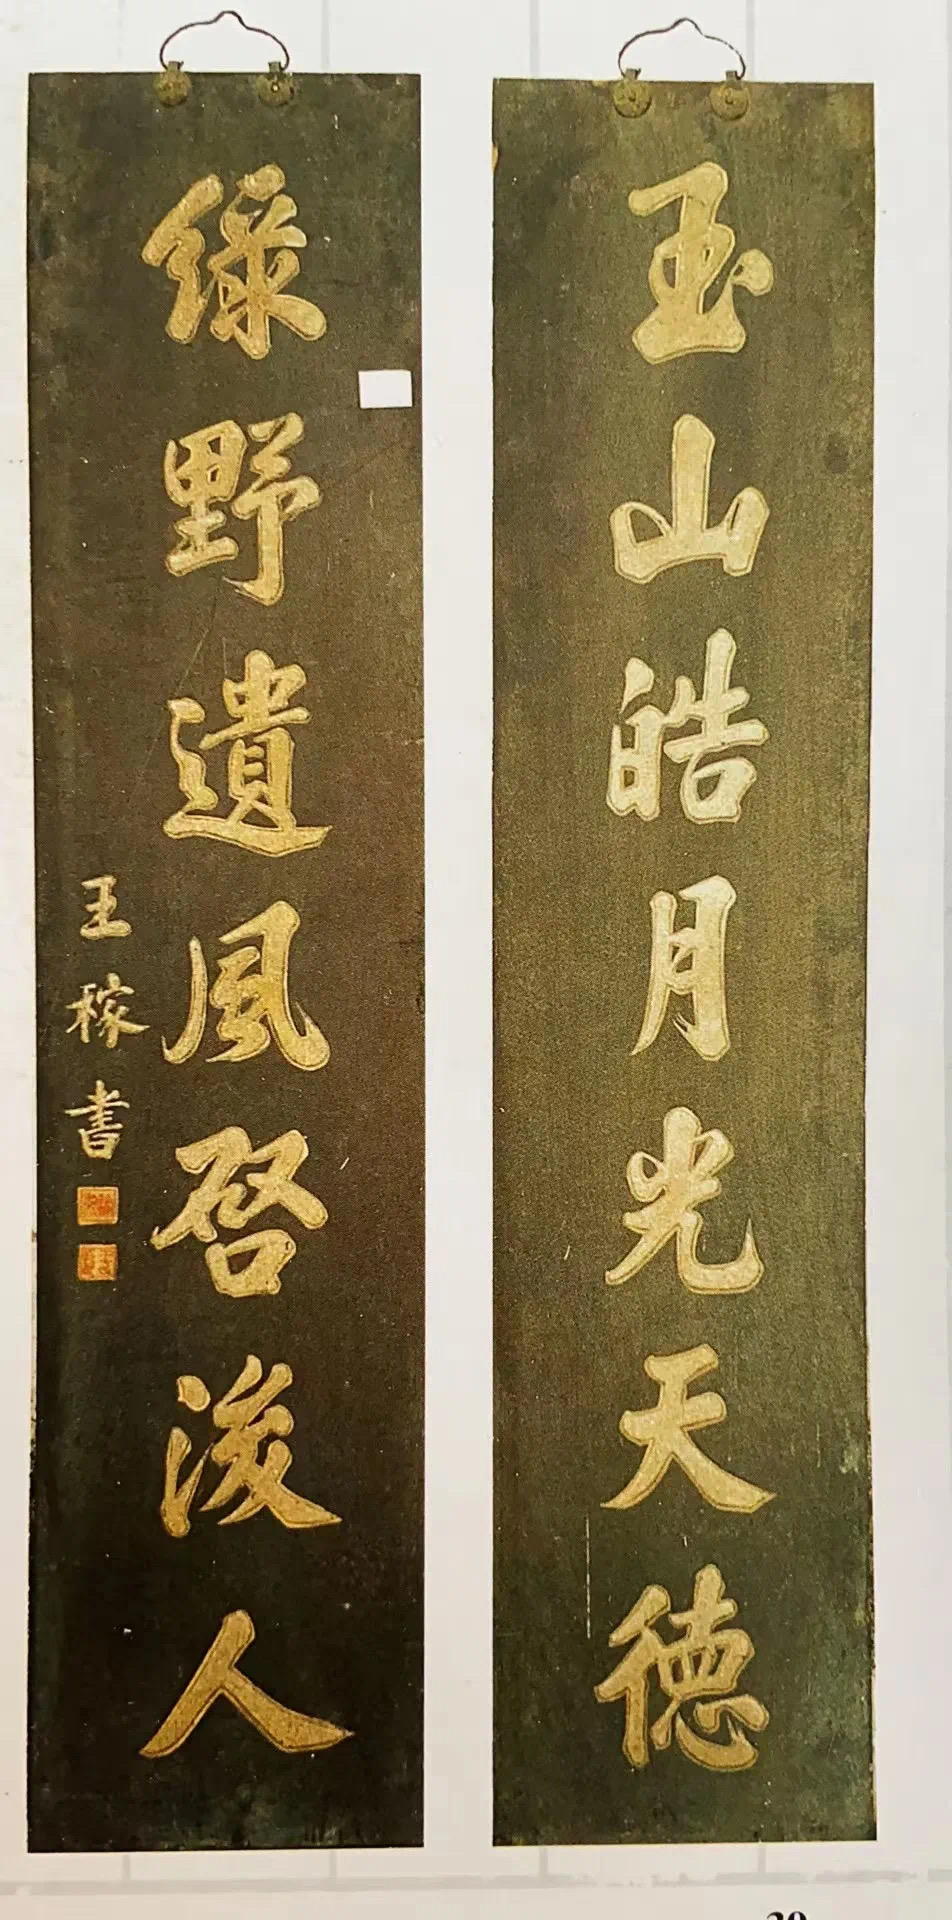 玉山皓月光天德
綠野遺風啓後人
王稼書